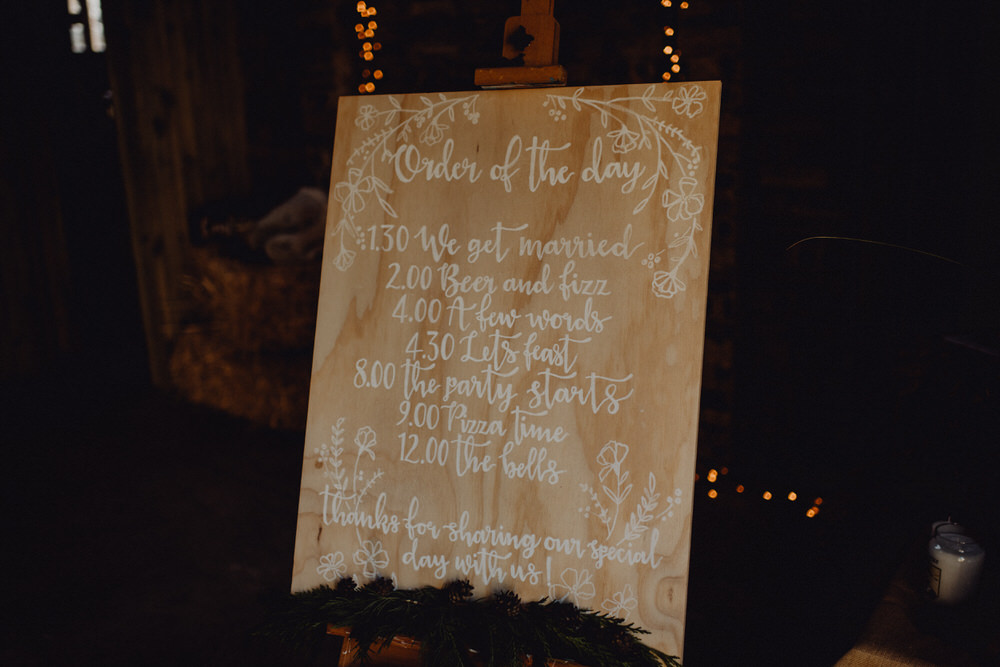 Order of the day
1.30 We get married
2.00 Beer and fizz
4.00 A few words
4.30 Lets feast
8.00 the party starts
9.00 Pizza time
12.00 the bells
thanks for sharing our special
day with us!